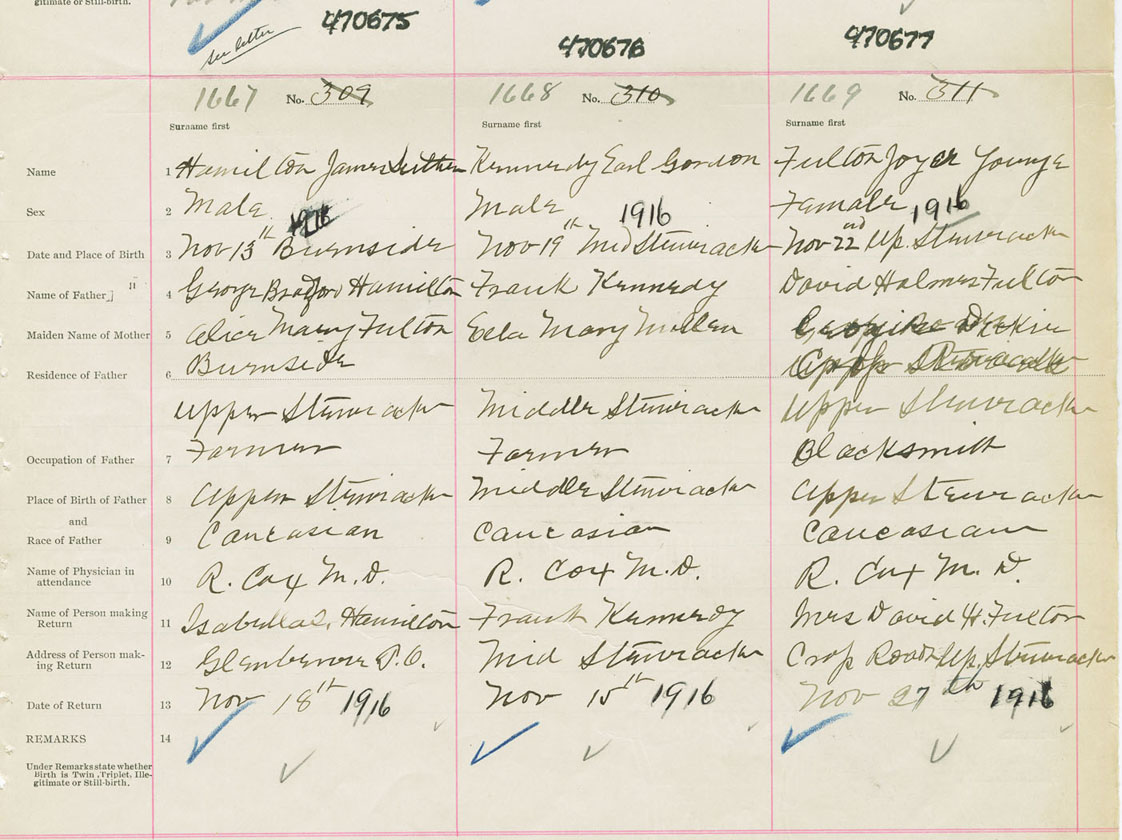 gitimate or Still-birth.
see letter
470675 470676 470677
1667 No. 309 1668 No. 310 1669 No. 311
Surname first Surname first Surname first
Name 1 Hamilton James Luther Kennedy Earl Gordon Fulton Joyce Younge
Sex 2 Male Male Female
1916 1916 1916
Date and Place of Birth 3 Nov 13th Burnside Nov 19th Mid Stewiacke Nov 22nd Up. Stewiacke
Name of Father 4 George Bradford Hamilton Frank Kennedy David Holmes Fulton
Maiden Name of Mother 5 Alice Mary Fulton Eela Mary Millen Georgina Dickie
Residence of Father 6 Burnside
Upper Stewiacke Middle Stewiacke Upper Stewiacke
Occupation of Father 7 Farmer Farmer Blacksmith
Place of Birth of Father 8 Upper Stewiacke Middle Stewiacke Upper Stewiacke
and
Race of Father 9 Caucasian Caucasian Caucasian
Name of Physician in
attendance 10 R. Cox M.D. R. Cox M.D. R. Cox M.D.
Name of Person making
Return 11 Isabella S. Hamilton Frank Kennedy Mrs David H. Fulton
Address of Person mak-
ing Return 12 Glenbervie P.O. Mid Stewiacke Crop Road Up. Stewiacke
Date of Return 13 Nov 18th 1916 Nov 15th 1916 Nov 27th 1916
REMARKS 14
Under Remarks state whether
Birth is Twin, Triplet, Ille-
gitimate or Still-birth.